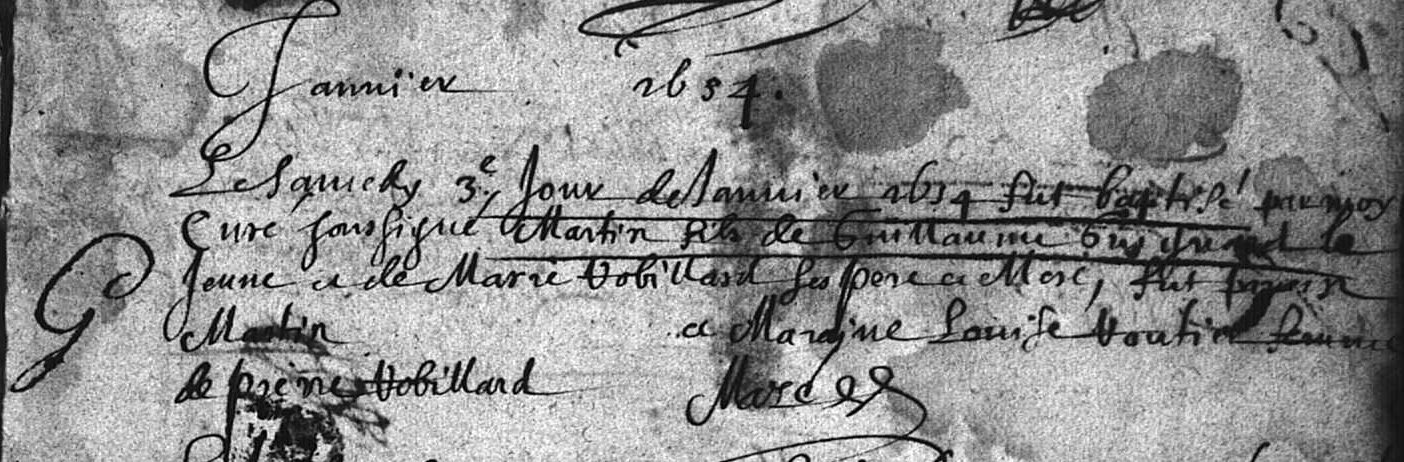 Januier 1654.
Le Samedy 3.e Jour de Januier 1654 fut baptisé par moy
Curé soussigné Martin fils de Guillaume le
Jeune et de Marie Vobillard ses pere et Mere, fut parain
Martin et Maraine Louise Voutier femme
de pierre Vobillard